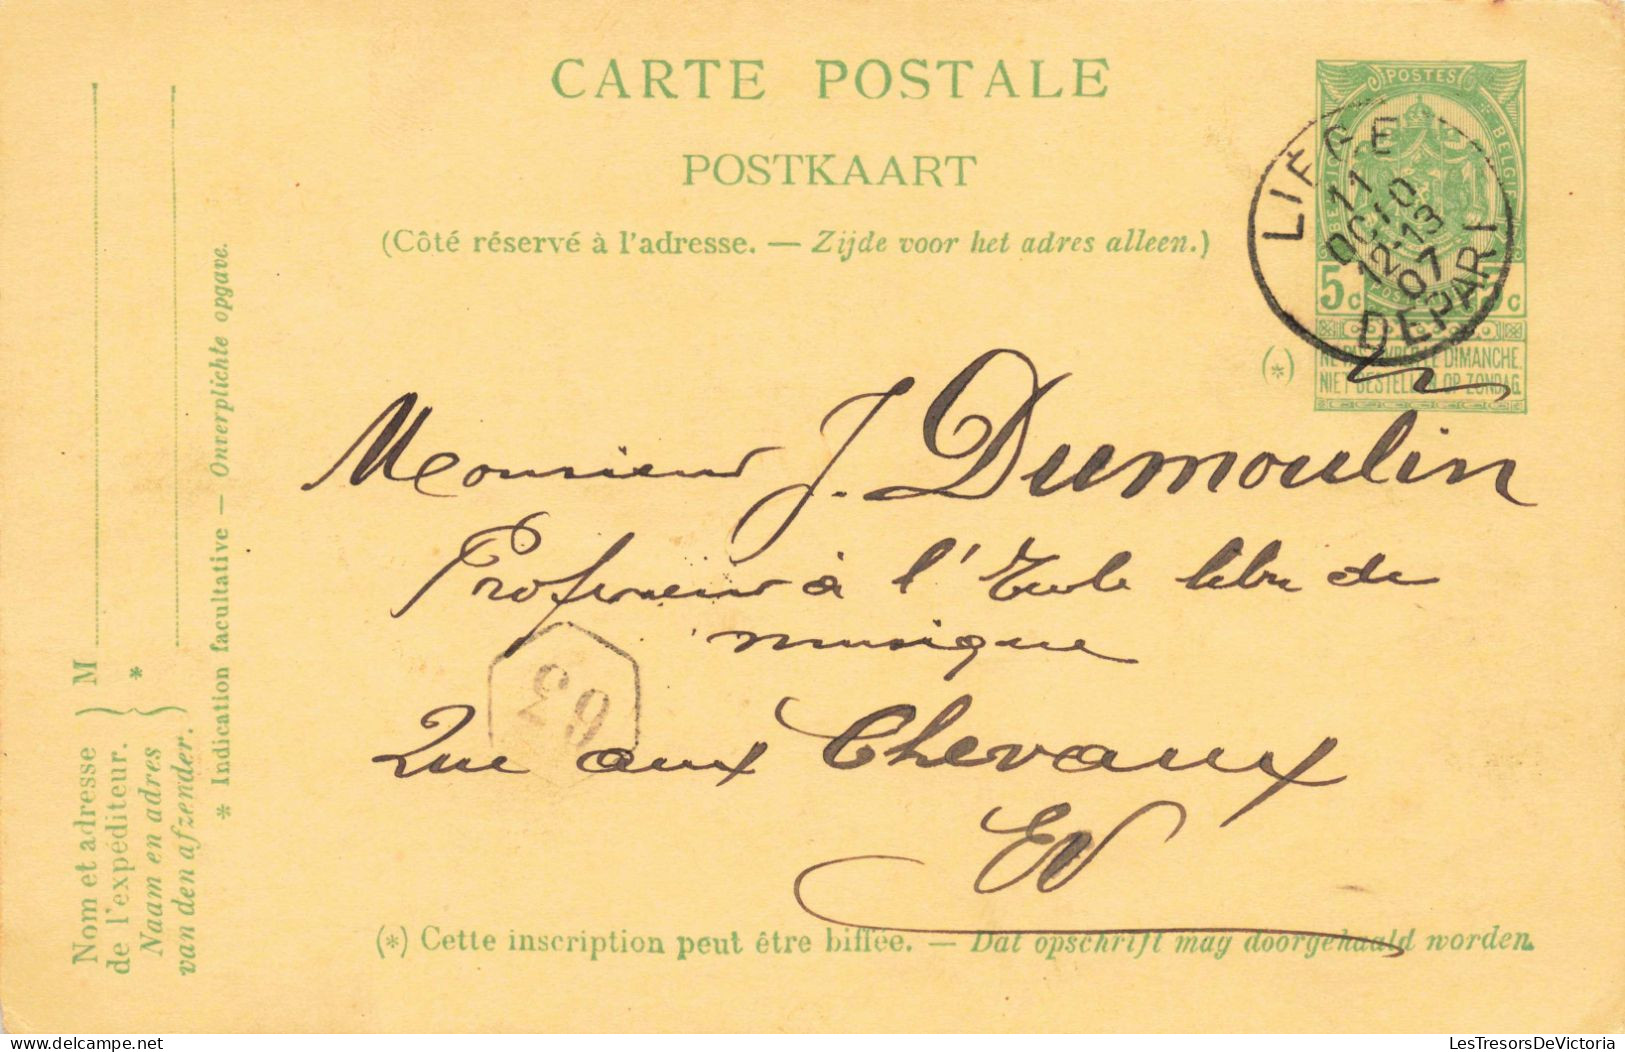 CARTE POSTALE
POSTKAART
(Côté réservé à l'adresse. — Zijde voor het adres alleen.)
POSTES
BELGIE
5c 5c
NE PAS LIVRER LE DIMANCHE.
NIET BESTELLEN OP ZONDAG.
(*)
LIÉGE
11
OCT
12-13
07
DEPART
Monsieur J. Dumoulin
Professeur à l'Ecole libre de
musique
63
Rue aux Chevaux
EV
(*) Cette inscription peut être biffée. — Dat opschrift mag doorgehaald worden.
M
*
Nom et adresse
de l'expéditeur.
Naam en adres
van den afzender.
* Indication facultative — Onverplichte opgave.
LesTresorsDeVictoria
LesTresorsDeVictoria.com